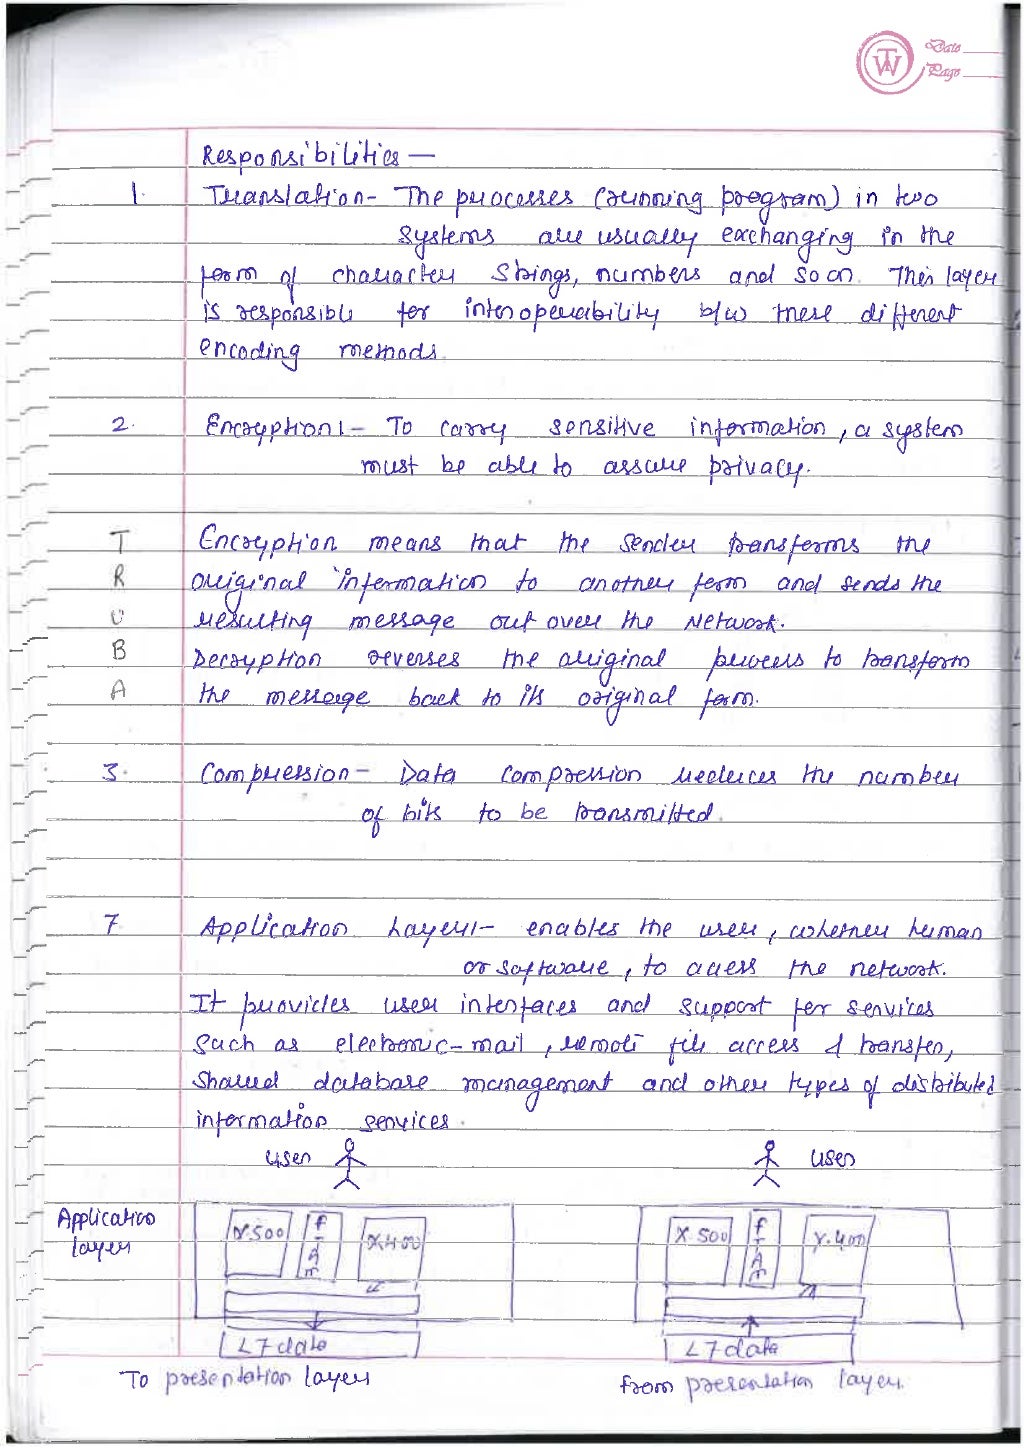 TW
Date
Page
Responsibilities —
1. Translation- The processes (running program) in two
systems are usually exchanging in the
form of character strings, numbers and so on. This layer
is responsible for interoperability b/w these different
encoding methods.
2. Encryption:- To carry sensitive information, a system
must be able to assure privacy.
T Encryption means that the sender transforms the
R original information to another form and sends the
U resulting message out over the Network.
B Decryption reverses the original process to transform
A the message back to its original form.
3. Compression- Data compression reduces the number
of bits to be transmitted.
7 Application Layer:- enables the user, whether human
or software, to acess the network.
It provides user interfaces and support for services
such as electronic-mail, remote file access & transfer,
shared database management and other types of distributed
information services.
user user
Application
layer
X.500 FTAM X.400 X.500 FTAM X.400
L7 data L7 data
To presentation layer from presentation layer.